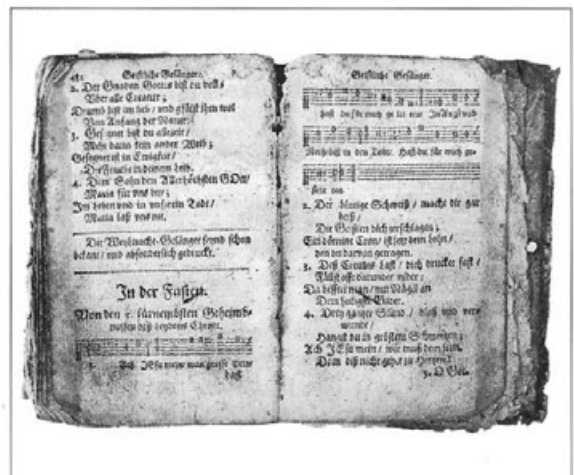 Geistliche Gesänger.
2. Der Gnaden Gottes bist du voll /
Vber alle Creatur ;
Drumb bist im lieb / vnd gfällst ihm wol
Von Anfang der Natur.
3. Gesegnet bist du allezeit /
Mehr dann kein ander Weib ;
Gesegnet ist in Ewigkeit /
Die Frucht in deinem Leib.
4. Dein Sohn den Allerhöchsten GOtt /
Maria für vns bitt ;
Im Leben vnd in vnserm Todt /
Maria laß vns nit.
Die Weyhnacht-Gesänger seynd schon
bekant / vnd absonderlich gedruckt.
In der Fasten.
Von den fürnembsten Geheimb-
nussen deß Leydens Christi.
1. Ach JEsu mein / was grosse Peyn
hast
Geistliche Gesänger.
hast du für mich gelitten Angst vnd
Noth bist in den Todt. Hast du für mich ge-
2. Der blutige Schweiß / macht dir gar
heiß /
Die Geißlen dich zerschlagen ;
Ein dörnine Cron / ist
den du darvon getragen.
3. Deß Creutzes Last / dich drucket fast /
Fällst offt darunder nider ;
Da hefftet man / mit Nägel an
Dein heilige Glider.
4. Drey gantzer Stund / bloß vnd ver-
wundt /
Hangst du in grösten Schmertzen ;
Ach JEsu mein / wie muß dem seyn /
Dem diß nicht geht zu Hertzen!
5. O